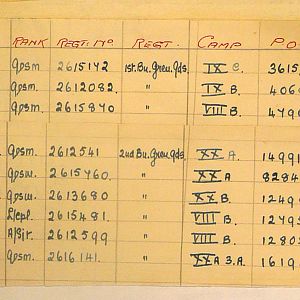 RANK REGTL. No REGT. CAMP PO
Gdsm 2615172 1st. Bn. Gren. Gds. IX C. 3615
Gdsm 2612082. " IX B. 4069
Gdsm 2615870 " VIII B. 4790
Gdsm. 2612541 2nd Bn. Gren. Gds. XX A. 14991
Gdsm. 2615760. " XX A 8284
Gdsm. 2613680 " XX B. 12495
L/Cpl. 2615481. " VIII B. 12495
A/Sjt. 2612599 " VIII B. 12803
Gdsm. 2616141. " XX A 3.A. 16195